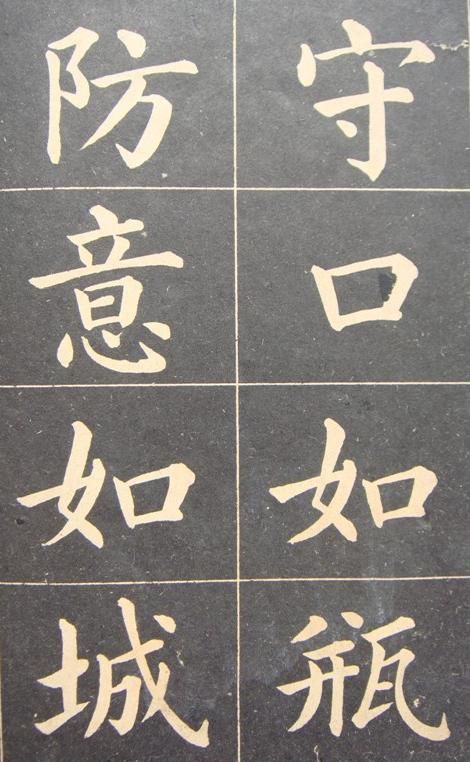 守口如瓶
防意如城